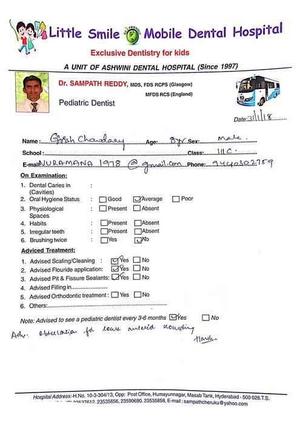 Little Smile Mobile Dental Hospital
Exclusive Dentistry for kids
A UNIT OF ASHWINI DENTAL HOSPITAL (Since 1997)
Dr. SAMPATH REDDY, MDS, FDS RCPS (Glasgow)
MFDS RCS (England)
Pediatric Dentist
Date: 3/1/18
Name: Age: 8yr Sex: Male
School: Class: III C
E-mail: NURAMANA 1978 @ gmail.com Phone:
On Examination:
1. Dental Caries in (Cavities) :
2. Oral Hygiene Status : Good Average Poor
3. Physiological Spaces : Present Absent
4. Habits : Present Absent
5. Irregular teeth : Present Absent
6. Brushing twice : Yes No
Adviced Treatment:
1. Advised Scaling/Cleaning : Yes No
2. Advised Flouride application: Yes No
3. Advised Pit & Fissure Sealants: Yes No
4. Advised Filling in
5. Advised Orthodontic treatment : Yes No
6. Others:
Note: Advised to see a pediatric dentist every 3-6 months Yes No
Adv. observation for lower anterior crowding
Hospital Address: H.No. 10-3-304/13, Opp: Post Office, Humayunagar, Masab Tank, Hyderabad - 500 028.T.S.
23535658, 23590680, 23535856, E-mail : sampathcheruku@yahoo.com